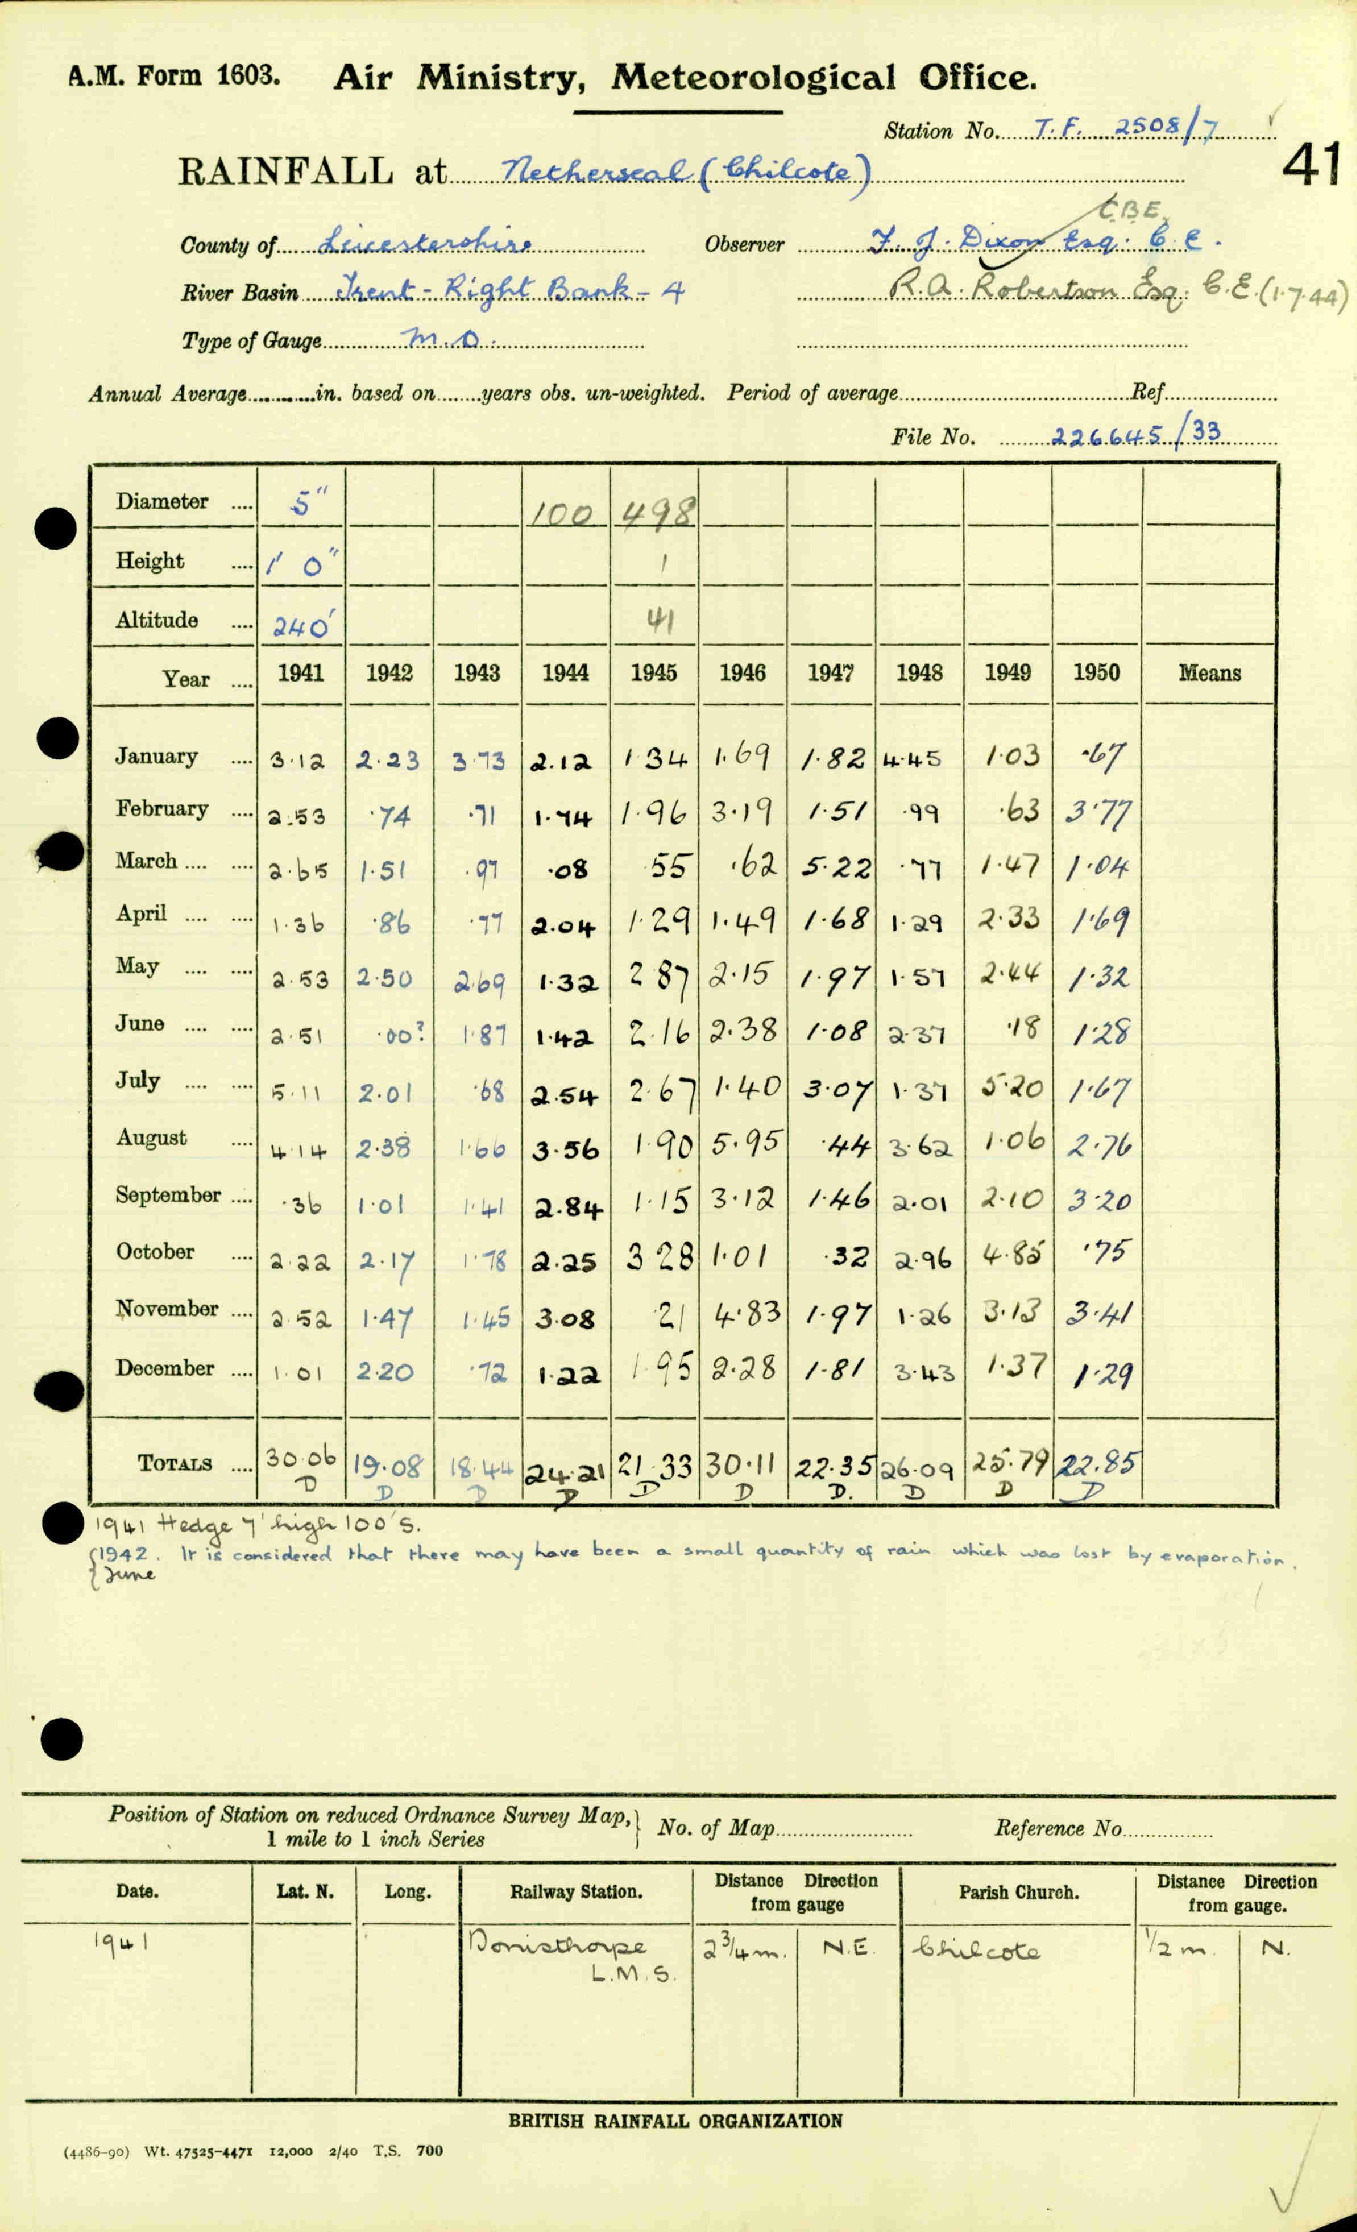 A.M. Form 1603. Air Ministry, Meteorological Office.
Station No. T.F. 2508/7
41
RAINFALL at Netherseal (Chilcote)
C.B.E.
County of Leicestershire Observer F. J. Dixon Esq. C.E.
River Basin Trent - Right Bank - 4 R.A. Robertson Esq. C.E. (1.7.44)
Type of Gauge M.O.
Annual Average in. based on years obs. un-weighted. Period of average Ref.
File No. 226645/33
Diameter 5" 100 498
Height 1' 0" 1
Altitude 240' 41
Year 1941 1942 1943 1944 1945 1946 1947 1948 1949 1950 Means
January 3.12 2.23 3.73 2.12 1.34 1.69 1.82 4.45 1.03 .67
February 2.53 .74 .71 1.74 1.96 3.19 1.51 .99 .63 3.77
March 2.65 1.51 .97 .08 .55 .62 5.22 .77 1.47 1.04
April 1.36 .86 .77 2.04 1.29 1.49 1.68 1.29 2.33 1.69
May 2.53 2.50 2.69 1.32 2.87 2.15 1.97 1.57 2.44 1.32
June 2.51 .00? 1.87 1.42 2.16 2.38 1.08 2.37 .18 1.28
July 5.11 2.01 .68 2.54 2.67 1.40 3.07 1.37 5.20 1.67
August 4.14 2.38 1.66 3.56 1.90 5.95 .44 3.62 1.06 2.76
September .36 1.01 1.41 2.84 1.15 3.12 1.46 2.01 2.10 3.20
October 2.22 2.17 1.78 2.25 3.28 1.01 .32 2.96 4.85 .75
November 2.52 1.47 1.45 3.08 .21 4.83 1.97 1.26 3.13 3.41
December 1.01 2.20 .72 1.22 1.95 2.28 1.81 3.43 1.37 1.29
TOTALS 30.06 19.08 18.44 24.21 21.33 30.11 22.35 26.09 25.79 22.85
D D D D D D D. D D D
1941 Hedge 7' high 100' S.
{1942. It is considered that there may have been a small quantity of rain which was lost by evaporation.
{June
Position of Station on reduced Ordnance Survey Map, } No. of Map Reference No.
1 mile to 1 inch Series
Date. Lat. N. Long. Railway Station. Distance from gauge Direction Parish Church. Distance from gauge. Direction
1941 Donisthorpe 2¾ m. N.E. Chilcote ½ m. N.
L.M.S.
BRITISH RAINFALL ORGANIZATION
(4486-90) Wt. 47525-4471 12,000 2/40 T.S. 700